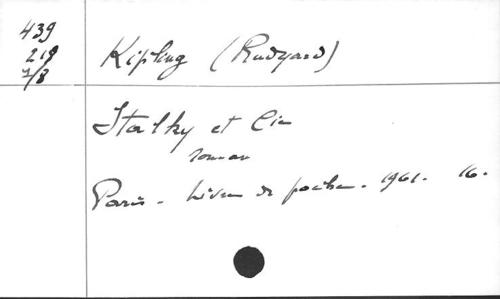 439
219
7/8
Kipling (Rudyard)
Stalky et Cie
roman
Paris - Livre de poche - 1961. 16.